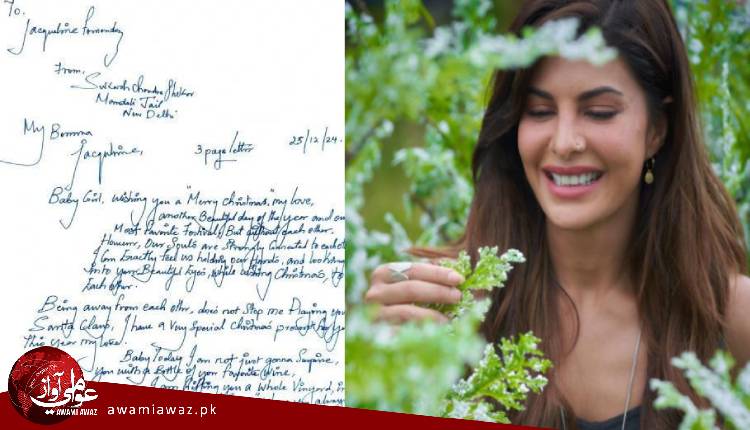 To,
Jacqueline Fernandez
From,
Sukash Chandra Shekar
Mandoli Jail
New Delhi
My Bomma
Jacqueline, 3 page letter 25/12/24
Baby Girl, wishing you a "Merry Christmas," my love,
another Beautiful day of the year and one
Most Favorite Festivals But without each other.
However, Our Souls are Strongly Connected to each
I Can Exactly feel us holding our hands, and looking
into your Beautiful Eyes, while wishing Christmas, to
Each other.
Being away from each other, does not Stop me Playing your
Santa Claus, I have a Very Special Christmas present for you
this year my love.
Baby Today I am not just gonna Surprise,
you with a Bottle of your Favorite Wine,
I am Gifting you a whole Vineyard, in
always
عوامی آواز
AWAMI AWAZ
awamiawaz.pk